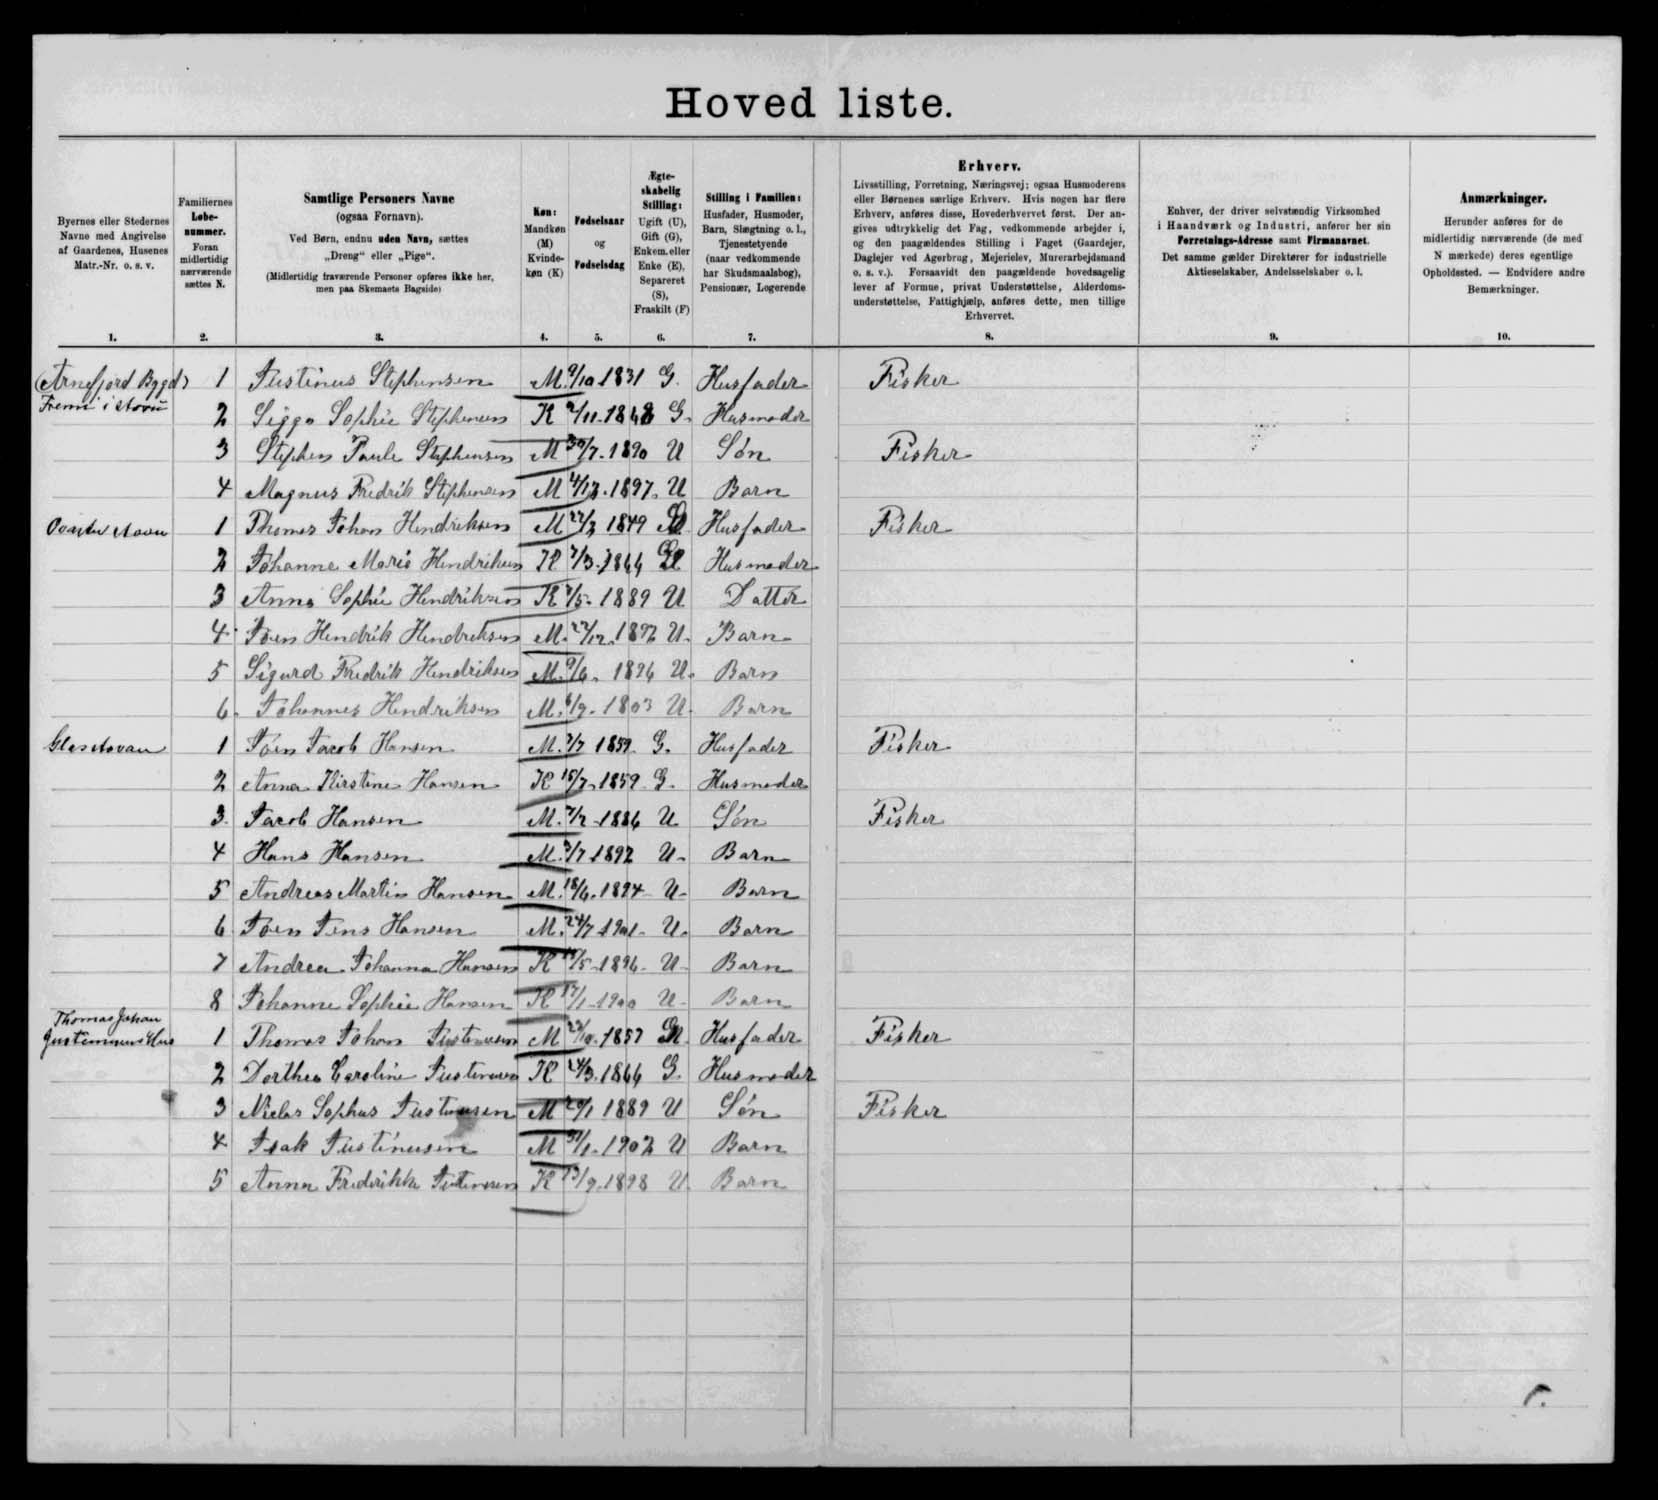 Hoved liste.
Byernes eller Stedernes Navne med Angivelse af Gaardenes, Husenes Matr.-Nr. o. s. v.
1.
Familiernes Løbe-nummer. Foran midlertidig nærværende sættes N.
2.
Samtlige Personers Navne
(ogsaa Fornavn).
Ved Børn, endnu uden Navn, sættes
„Dreng“ eller „Pige“.
(Midlertidig fraværende Personer opføres ikke her, men paa Skemaets Bagside)
3.
Køn: Mandkøn (M) Kvinde-køn (K)
4.
Fødselsaar og Fødselsdag
5.
Ægte-skabelig Stilling: Ugift (U), Gift (G), Enkem. eller Enke (E), Separeret (S), Fraskilt (F)
6.
Stilling i Familien: Husfader, Husmoder, Barn, Slægtning o. l., Tjenestetyende (naar vedkommende har Skudsmaalsbog), Pensionær, Logerende
7.
Erhverv.
Livsstilling, Forretning, Næringsvej; ogsaa Husmoderens eller Børnenes særlige Erhverv. Hvis nogen har flere Erhverv, anføres disse, Hovederhvervet først. Der an-gives udtrykkelig det Fag, vedkommende arbejder i, og den paagældendes Stilling i Faget (Gaardejer, Daglejer ved Agerbrug, Mejerielev, Murerarbejdsmand o. s. v.). Forsaavidt den paagældende hovedsagelig lever af Formue, privat Understøttelse, Alderdoms-understøttelse, Fattighjælp, anføres dette, men tillige Erhvervet.
8.
Enhver, der driver selvstændig Virksomhed i Haandværk og Industri, anfører her sin Forretnings-Adresse samt Firmanavnet. Det samme gælder Direktører for industrielle Aktieselskaber, Andelsselskaber o. l.
9.
Anmærkninger.
Herunder anføres for de midlertidig nærværende (de med N mærkede) deres egentlige Opholdssted. — Endvidere andre Bemærkninger.
10.
(Arnefjord Bygd) 1 Justinus Stephensen M 9/10 1831 G. Husfader Fisker
2 Sigga Sophie Stephensen K /11-1848 G. Husmoder
3 Stephen Paule Stephensen M 30/7-1890 U Søn Fisker
4 Magnus Fredrik Stephensen M 1897. U Barn
1 Thomas Johan Hendriksen M 1849 Husfader Fisker
2 Johanne Marie Hendriksen K /3-1864 Husmoder
3 Anna Sophie Hendriksen K /5-1889 U Datter
4 Joen Hendrik Hendriksen M. 27/12. U. Barn
5 Sigurd Fredrik Hendriksen M. 9/6. 1896 U. Barn
6. Johannes Hendriksen M. /9- U. Barn
Glasstovau 1 Joen Jacob Hansen M. /7 1859. G. Husfader Fisker
2 Anna Kirstine Hansen K 15/7-1859 G. Husmoder
3. Jacob Hansen M. 1886 U Søn Fisker
4 Hans Hansen M. /7 1892 U- Barn
5 Andreas Martin Hansen M. 18/6-1894 U- Barn
6 Joen Jens Hansen M. 24/7 1901- U. Barn
7 Andrea Johanna Hansen K /5-1896- U- Barn
8 Johanne Sophie Hansen K 17/1-1900 U- Barn
Thomas Johan
Justinusens Hus 1 Thomas Johan Justinussen M 1857 Husfader Fisker
2 Dorthea Caroline Justinusen K 24/3-1866 G. Husmoder
3 Niclas Sophus Justinusen M 20/1 1889 U Søn Fisker
4 Isak Justinusen M /1-1902 U Barn
5 Anna Frederikke Justinusen K 13/9-1898 U. Barn